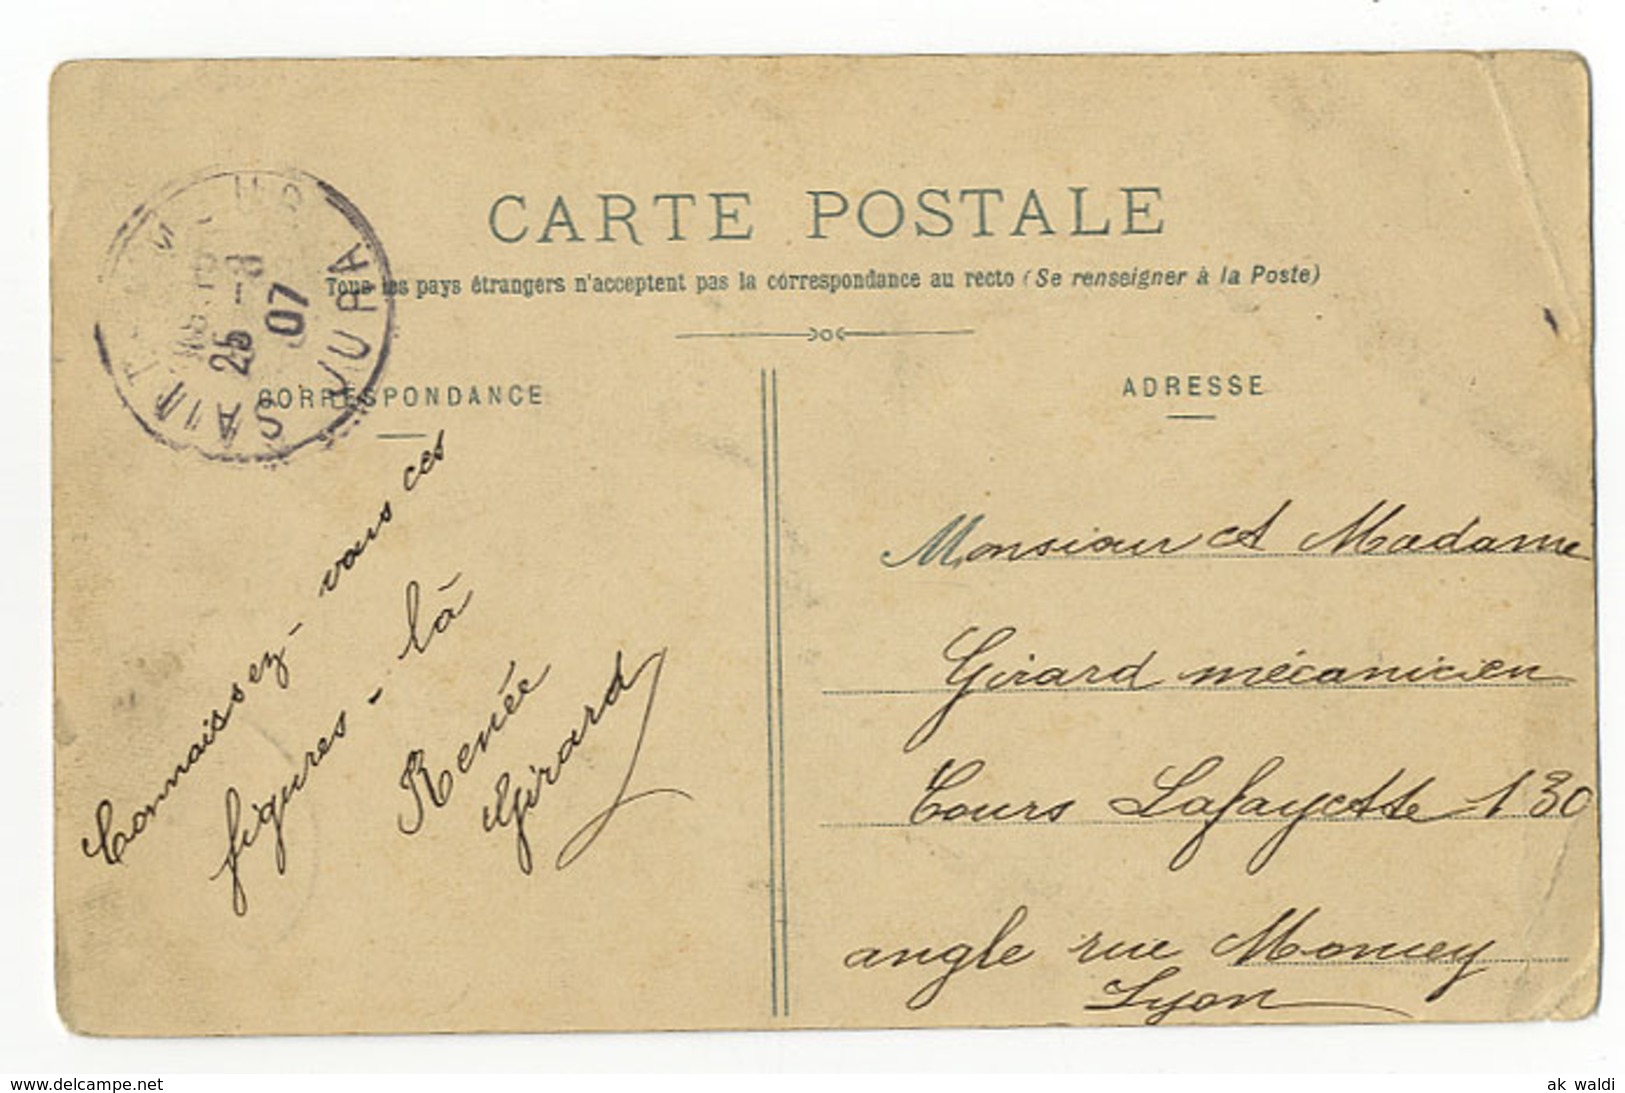 CARTE POSTALE
Tous les pays étrangers n'acceptent pas la correspondance au recto (Se renseigner à la Poste)
CORRESPONDANCE
ADRESSE
25 -8
07
JURA
Connaissez-vous ces
figures-là
Renée
Girard
Monsieur et Madame
Girard mécanicien
Cours Lafayette 130
angle rue Moncey
Lyon
www.delcampe.net
ak waldi